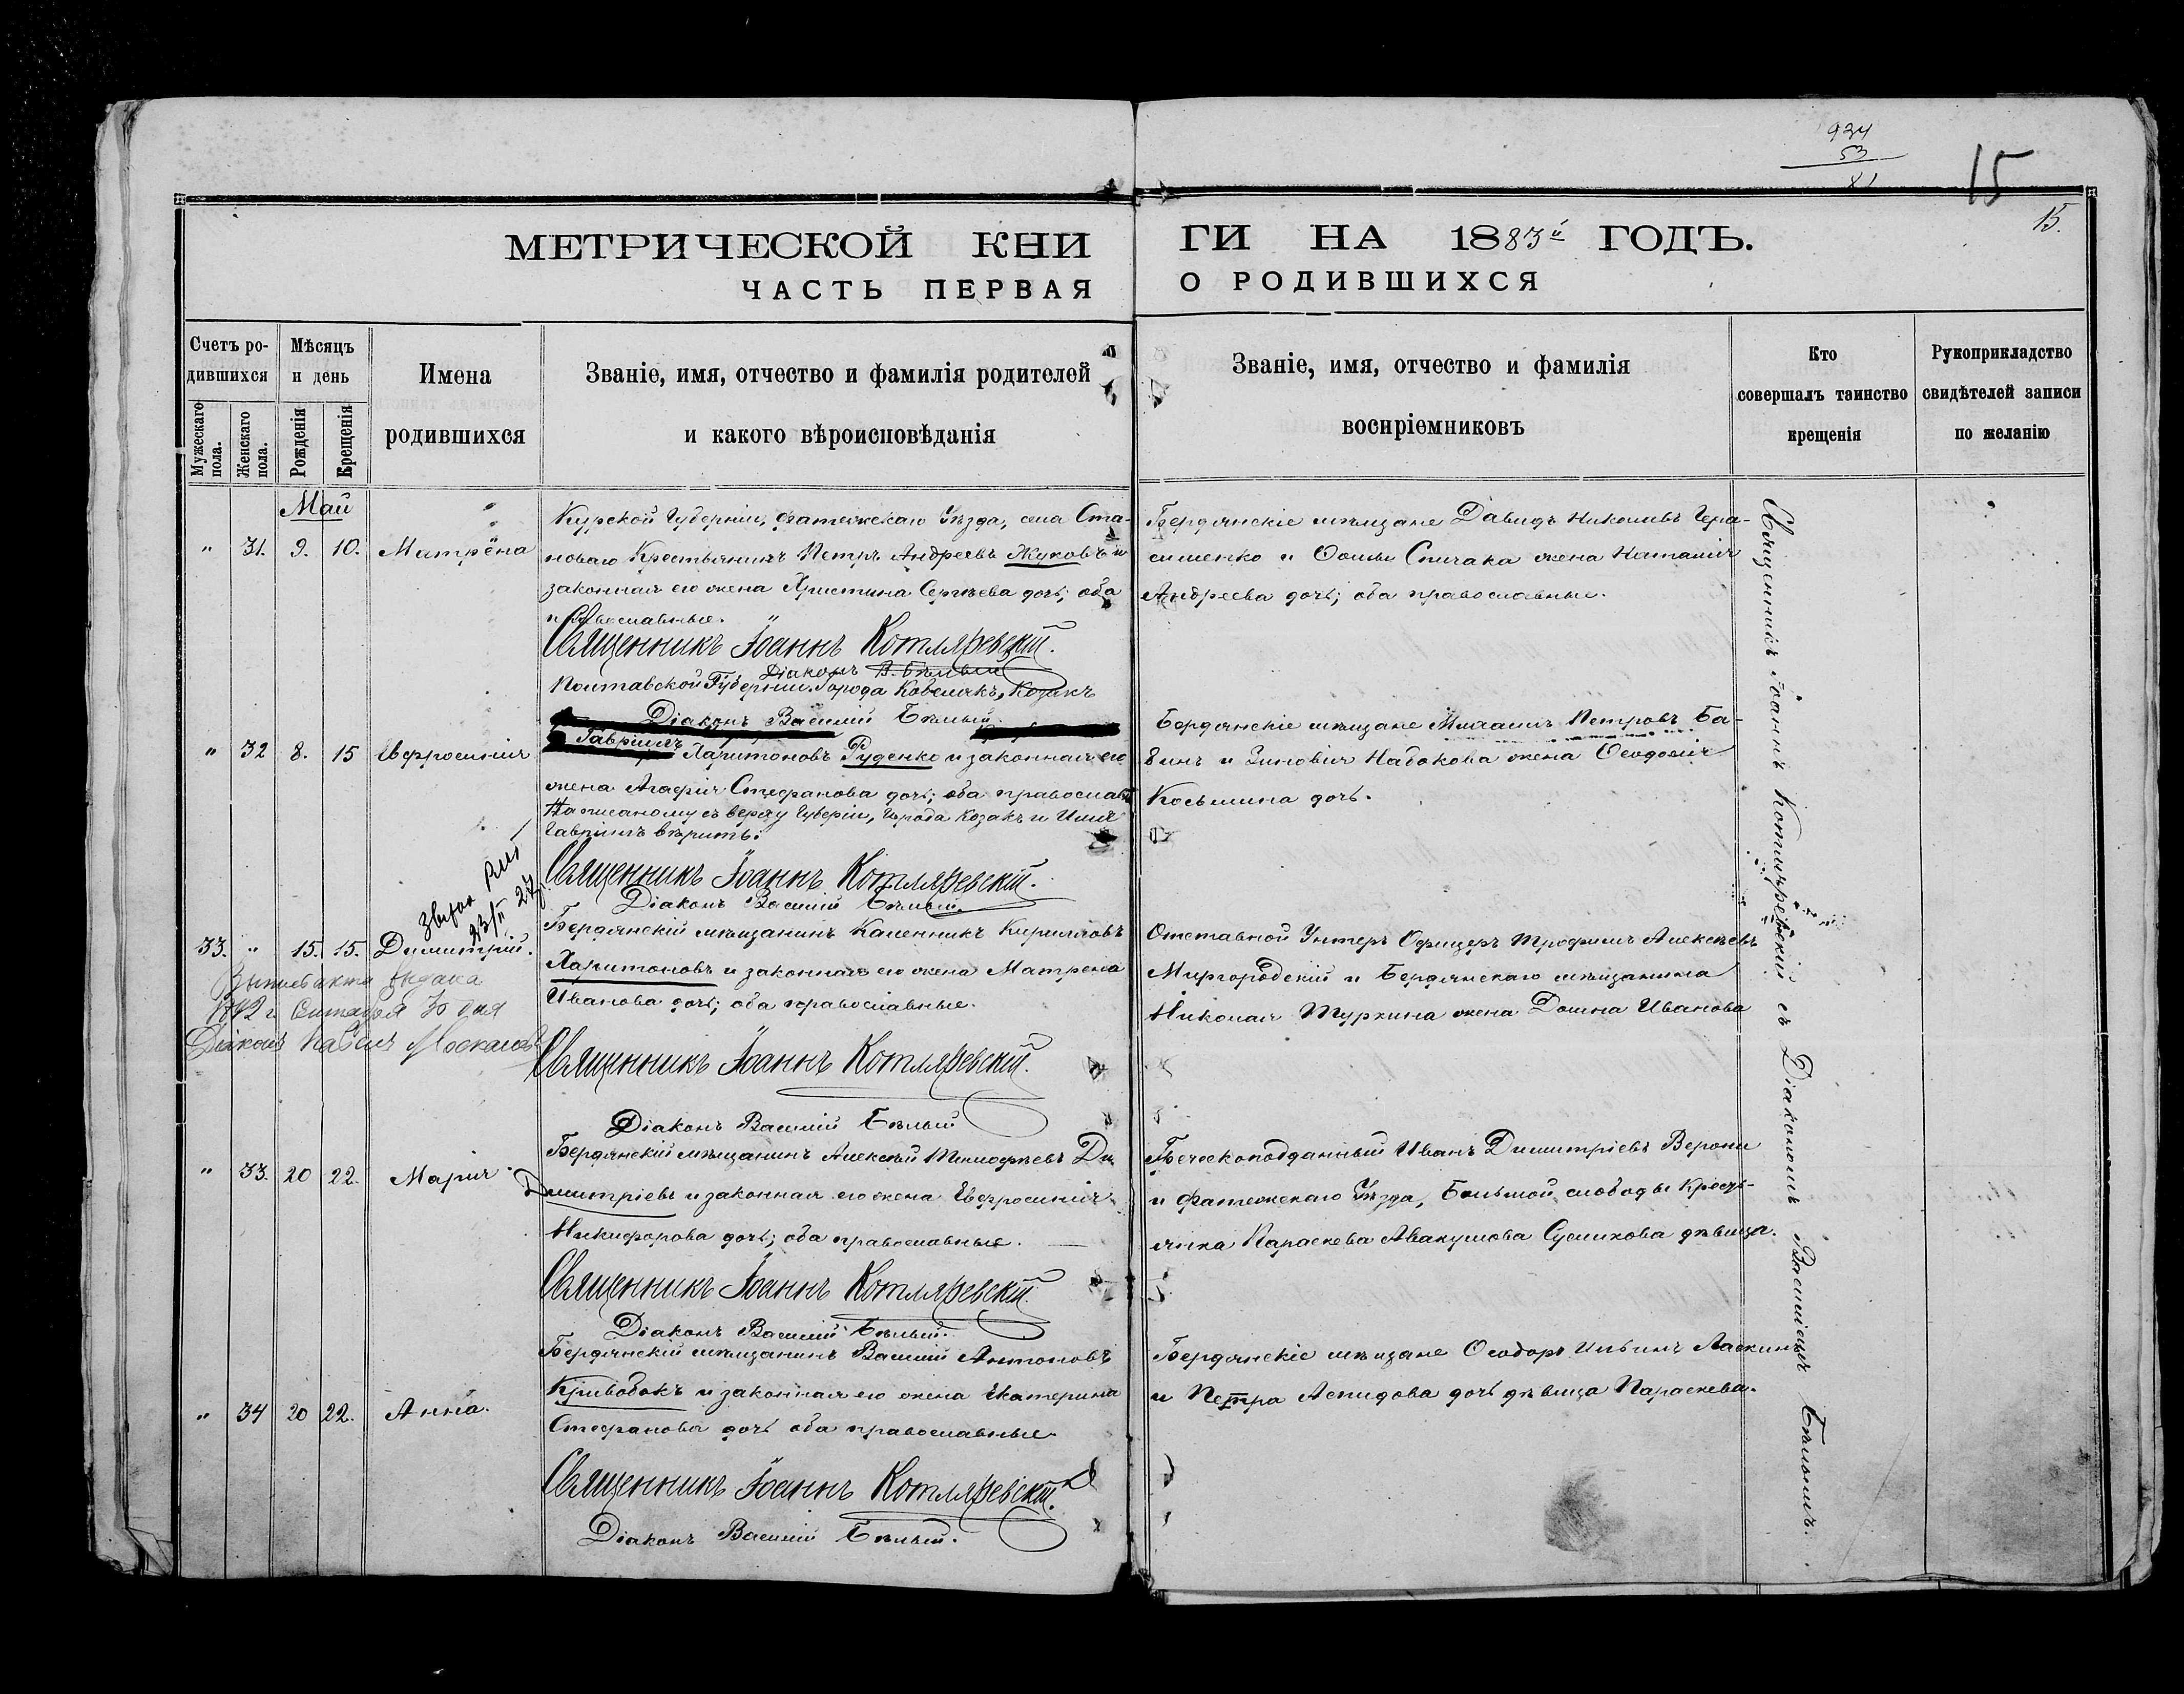 934
53
81
15
15.
МЕТРИЧЕСКОЙ КНИ
ГИ НА 1883й ГОДЪ.
ЧАСТЬ ПЕРВАЯ
О РОДИВШИХСЯ
Счетъ ро-
дившихся
Мужескаго
пола.
Женскаго
пола.
Мѣсяцъ
и день
Рожденія
Крещенія
Имена
родившихся
Званіе, имя, отчество и фамилія родителей
и какого вѣроисповѣданія
Званіе, имя, отчество и фамилія
воспріемниковъ
Кто
совершалъ таинство
крещенія
Рукоприкладство
свидѣтелей записи
по желанію
Май
" 31. 9. 10. Матрёна
Курской Губерніи, Фатежскаго Уѣзда, села Ста-
новаго Крестьянинъ Петръ Андреевъ Жуковъ и
законная его жена Христина Сергѣева дочь; оба
православные.
Священникъ Іоаннъ Котляревскій.
Діаконъ В. Бѣлый
Бердянскіе мѣщане Давидъ Николаевъ Гера-
сименко и Ѳомы Спичака жена Наталія
Андреева дочь; оба православные.
" 32 8. 15 Евфросинія
Полтавской Губерніи. Города Кобелякъ, Козакъ
Діаконъ Василій Бѣлый.
Гавріилъ Харитоновъ Руденко и законная его
жена Агафія Стефанова дочь; оба православн
Написаному съ верху Губерніи, Города Козакъ и Имя
Гавріилъ вѣрить.
Священникъ Іоаннъ Котляревскій.
Діаконъ Василій Бѣлый.
Бердянскіе мѣщане Михаилъ Петровъ Ба-
бинъ и Зиновія Набокова жена Ѳеодосія
Косьмина дочь.
33. " 15. 15. Димитрій.
23/II 27
Выпись акта выдана
1892 г. Сентября 30 дня
Діаконъ Павелъ
Бердянскій мѣщанинъ Каленникъ Кирилловъ
Харитоновъ и законная его жена Матрена
Иванова дочь; оба православные.
Священникъ Іоаннъ Котляревскій.
Діаконъ Василій Бѣлый
Отставной Унтеръ Офицеръ Трофимъ Алексѣевъ
Миргородскій и Бердянскаго мѣщанина
Николая Туркина жена Домна Иванова
" 33. 20 22. Марія.
Бердянскій мѣщанинъ Алексѣй Тимофѣевъ Ди
Димитріевъ и законная его жена Евфросинія
Никифорова дочь; оба православные.
Священникъ Іоаннъ Котляревскій.
Діаконъ Василій Бѣлый.
Греческоподданный Иванъ Димитріевъ Верони
и Фатежскаго Уѣзда, Большой слободы Кресть-
янка Параскева Авакумова Сусликова дѣвица.
" 34 20 22. Анна.
Бердянскій мѣщанинъ Василій Антоновъ
Кривобокъ и законная его жена Екатерина
Стефанова дочь оба православные.
Священникъ Іоаннъ Котляревскій.
Діаконъ Василій Бѣлый.
Бердянскіе мѣщане Ѳеодоръ Ильинъ Ласкинъ
и Петра Аспидова дочь дѣвица Параскева.
Священникъ Іоаннъ Котляревскій съ Діакономъ Василіемъ Бѣлымъ.